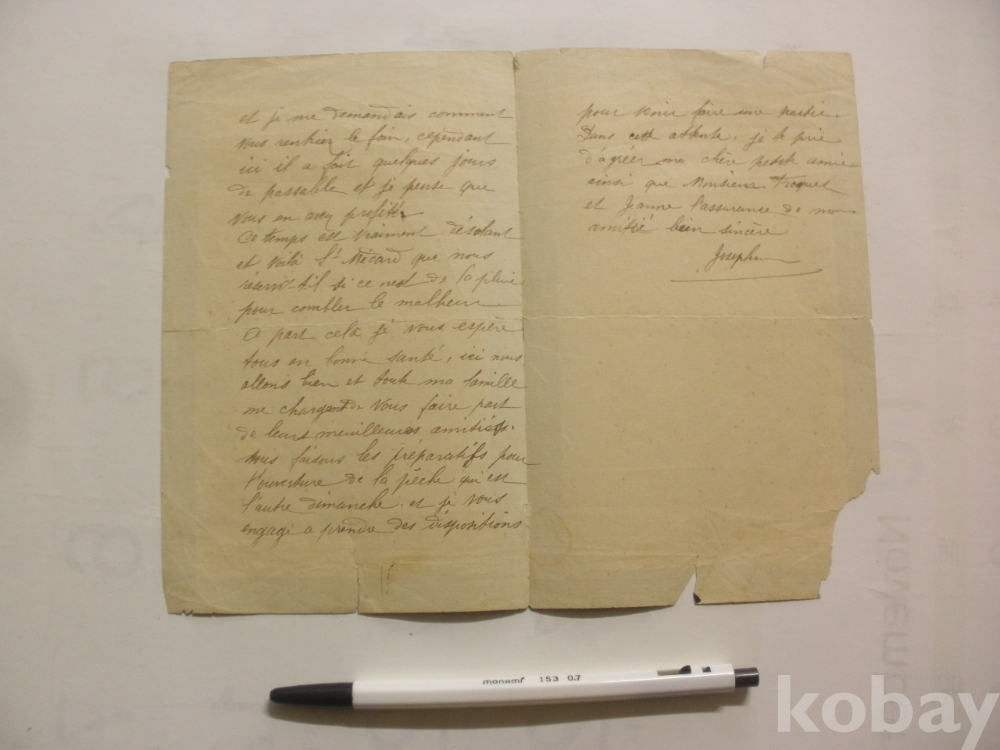 et je me demandais comment
vous rentriez le foin, cependant
ici il a fait quelques jours
de passable et je pense que
vous en avez profité
Ce temps est vraiment désolant
et voilà St Médard que nous
réserve t.il si ce n'est de la pluie
pour combler le malheur
A part cela je vous espère
tous en bonne santé, ici nous
allons bien et toute ma famille
me chargent de vous faire part
de leurs meilleures amitiés.
nous faisons les préparatifs pour
l'ouverture de la pêche qui est
l'autre dimanche et je vous
engage a prendre des dispositions
pour venir faire une partie.
Dans cette attente, je te prie
d'agréer ma chère petite amie
ainsi que Monsieur
et Jeanne l'assurance de mon
amitié bien sincère
Joseph
monami 153 0.7
kobay